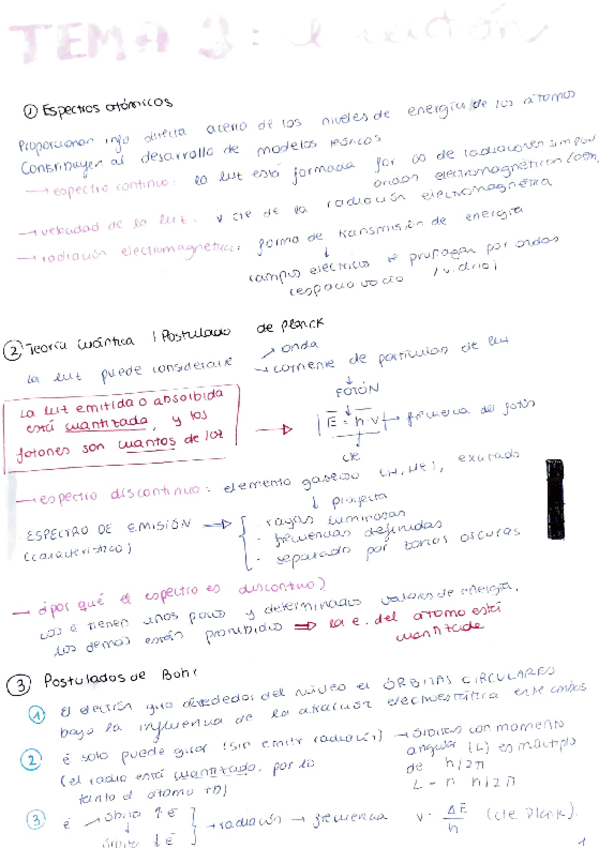 TEMA 3: el electrón
① Espectros atómicos
Proporcionan info directa acerca de los niveles de energía de los átomos
Contribuyen al desarrollo de modelos teóricos
→ espectro continuo: la luz está formada por ∞ de radiaciones simples
ondas electromagnéticas
→ velocidad de la luz: v cte de la radiación electromagnética
→ radiación electromagnética: forma de transmisión de energía
↓
campos eléctricos se propagan por ondas
(espacio vacío / vidrio)
② Teoría cuántica / Postulado de Planck
La luz puede considerarse ↗ onda
→ corriente de partículas de luz
↓
FOTÓN
La luz emitida o absorbida
está cuantizada, y los
fotones son cuantos de luz
→ | E = h·v | → frecuencia del fotón
↓
cte
→ espectro discontinuo: elemento gaseoso (H, He), excitado
↓ proyecta
ESPECTRO DE EMISIÓN → { · rayas luminosas
(característico) · frecuencias definidas
· separado por zonas oscuras
→ ¿por qué el espectro es discontinuo?
Los e tienen unos pocos y determinados valores de energía,
los demás están prohibidos ⇒ la e. del átomo está
cuantizada
③ Postulados de Bohr
① El electrón gira alrededor del núcleo en ÓRBITAS CIRCULARES
bajo la influencia de la atracción electroestática entre ambos
② é solo puede girar (sin emitir radiación) → órbitas con momento
(el radio está cuantizado, por lo angular (L) es múltiplo
tanto el átomo tb) de h/2π
L = n h/2π
③ é → órbita ↑E
↓
órbita ↓E } → radiación → frecuencia v = ΔE/h (cte Plank).
1